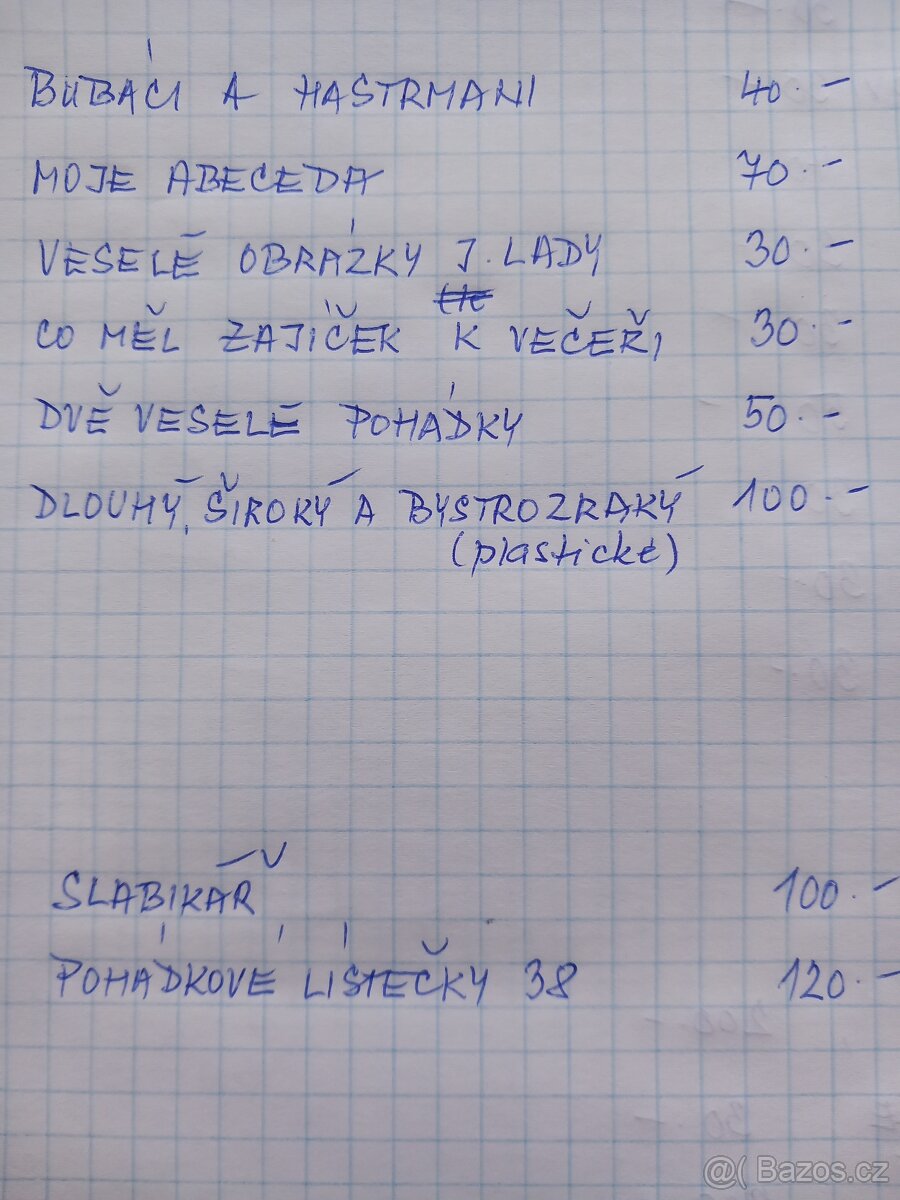 BUBÁCI A HASTRMANI 40.-
MOJE ABECEDA 70.-
VESELÉ OBRÁZKY J. LADY 30.-
CO MĚL ZAJÍČEK K VEČEŘI 30.-
DVĚ VESELÉ POHÁDKY 50.-
DLOUHÝ, ŠIROKÝ A BYSTROZRAKÝ 100.-
(plastické)
SLABIKÁŘ 100.-
POHÁDKOVÉ LÍSTEČKY 38 120.-
@( Bazos.cz